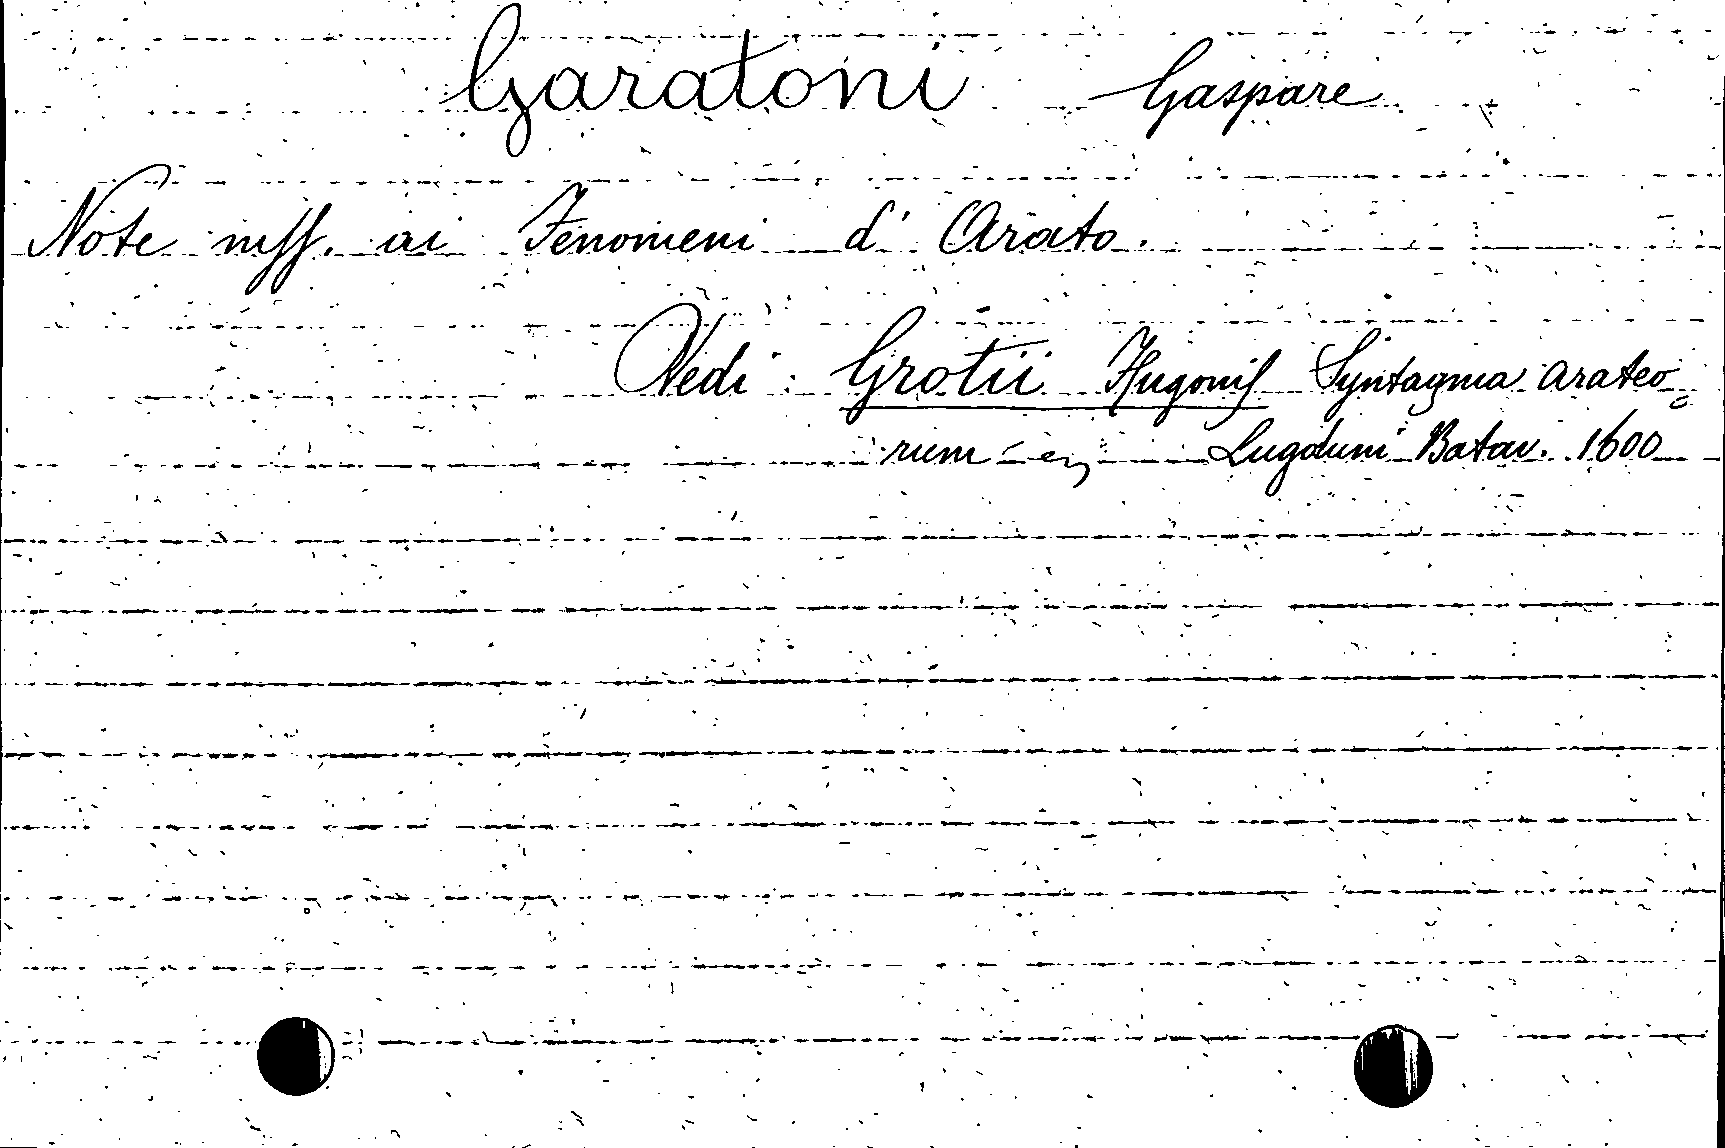 Garatoni Gaspare
Note mss. ai Fenomeni d' Arato.
Vedi: Grotii Hugonis Syntagma arateo=
rum Lugduni Batav. 1600